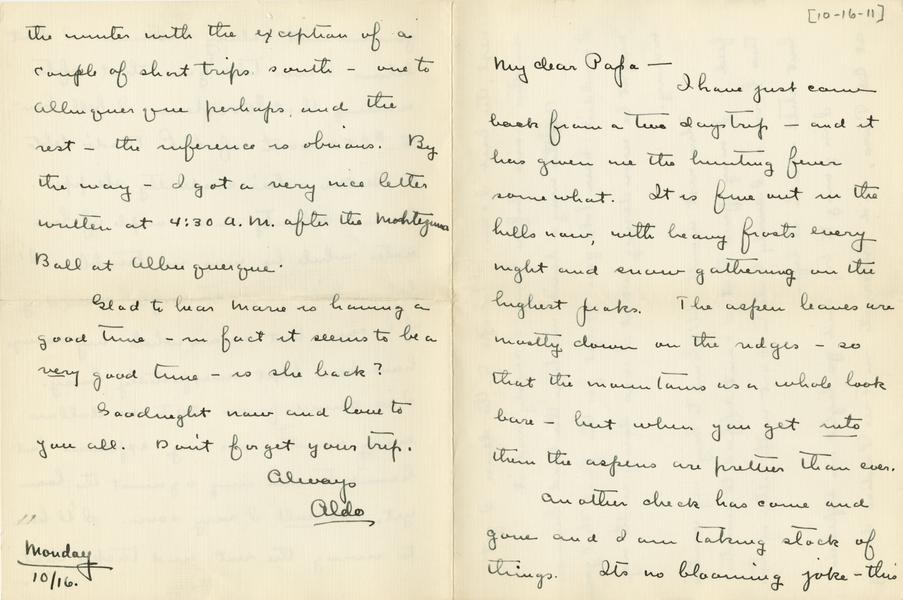 [10-16-11]
My dear Papa —
I have just come
back from a two days trip — and it
has given me the hunting fever
somewhat. It is fine out in the
hills now, with heavy frosts every
night and snow gathering on the
highest peaks. The aspen leaves are
mostly down on the ridges — so
that the mountains as a whole look
bare — but when you get into
them the aspens are prettier than ever.
Another check has come and
gone and I am taking stock of
things. Its no blooming joke — this
the winter with the exception of a
couple of short trips south — one to
Albuquerque perhaps, and the
rest — the inference is obvious. By
the way — I got a very nice letter
written at 4:30 A.M. after the Montezuma
Ball at Albuquerque.
Glad to hear Marie is having a
good time — in fact it seems to be a
very good time — is she back?
Goodnight now and love to
you all. Don't forget your trip.
Always
Aldo
Monday
10/16.